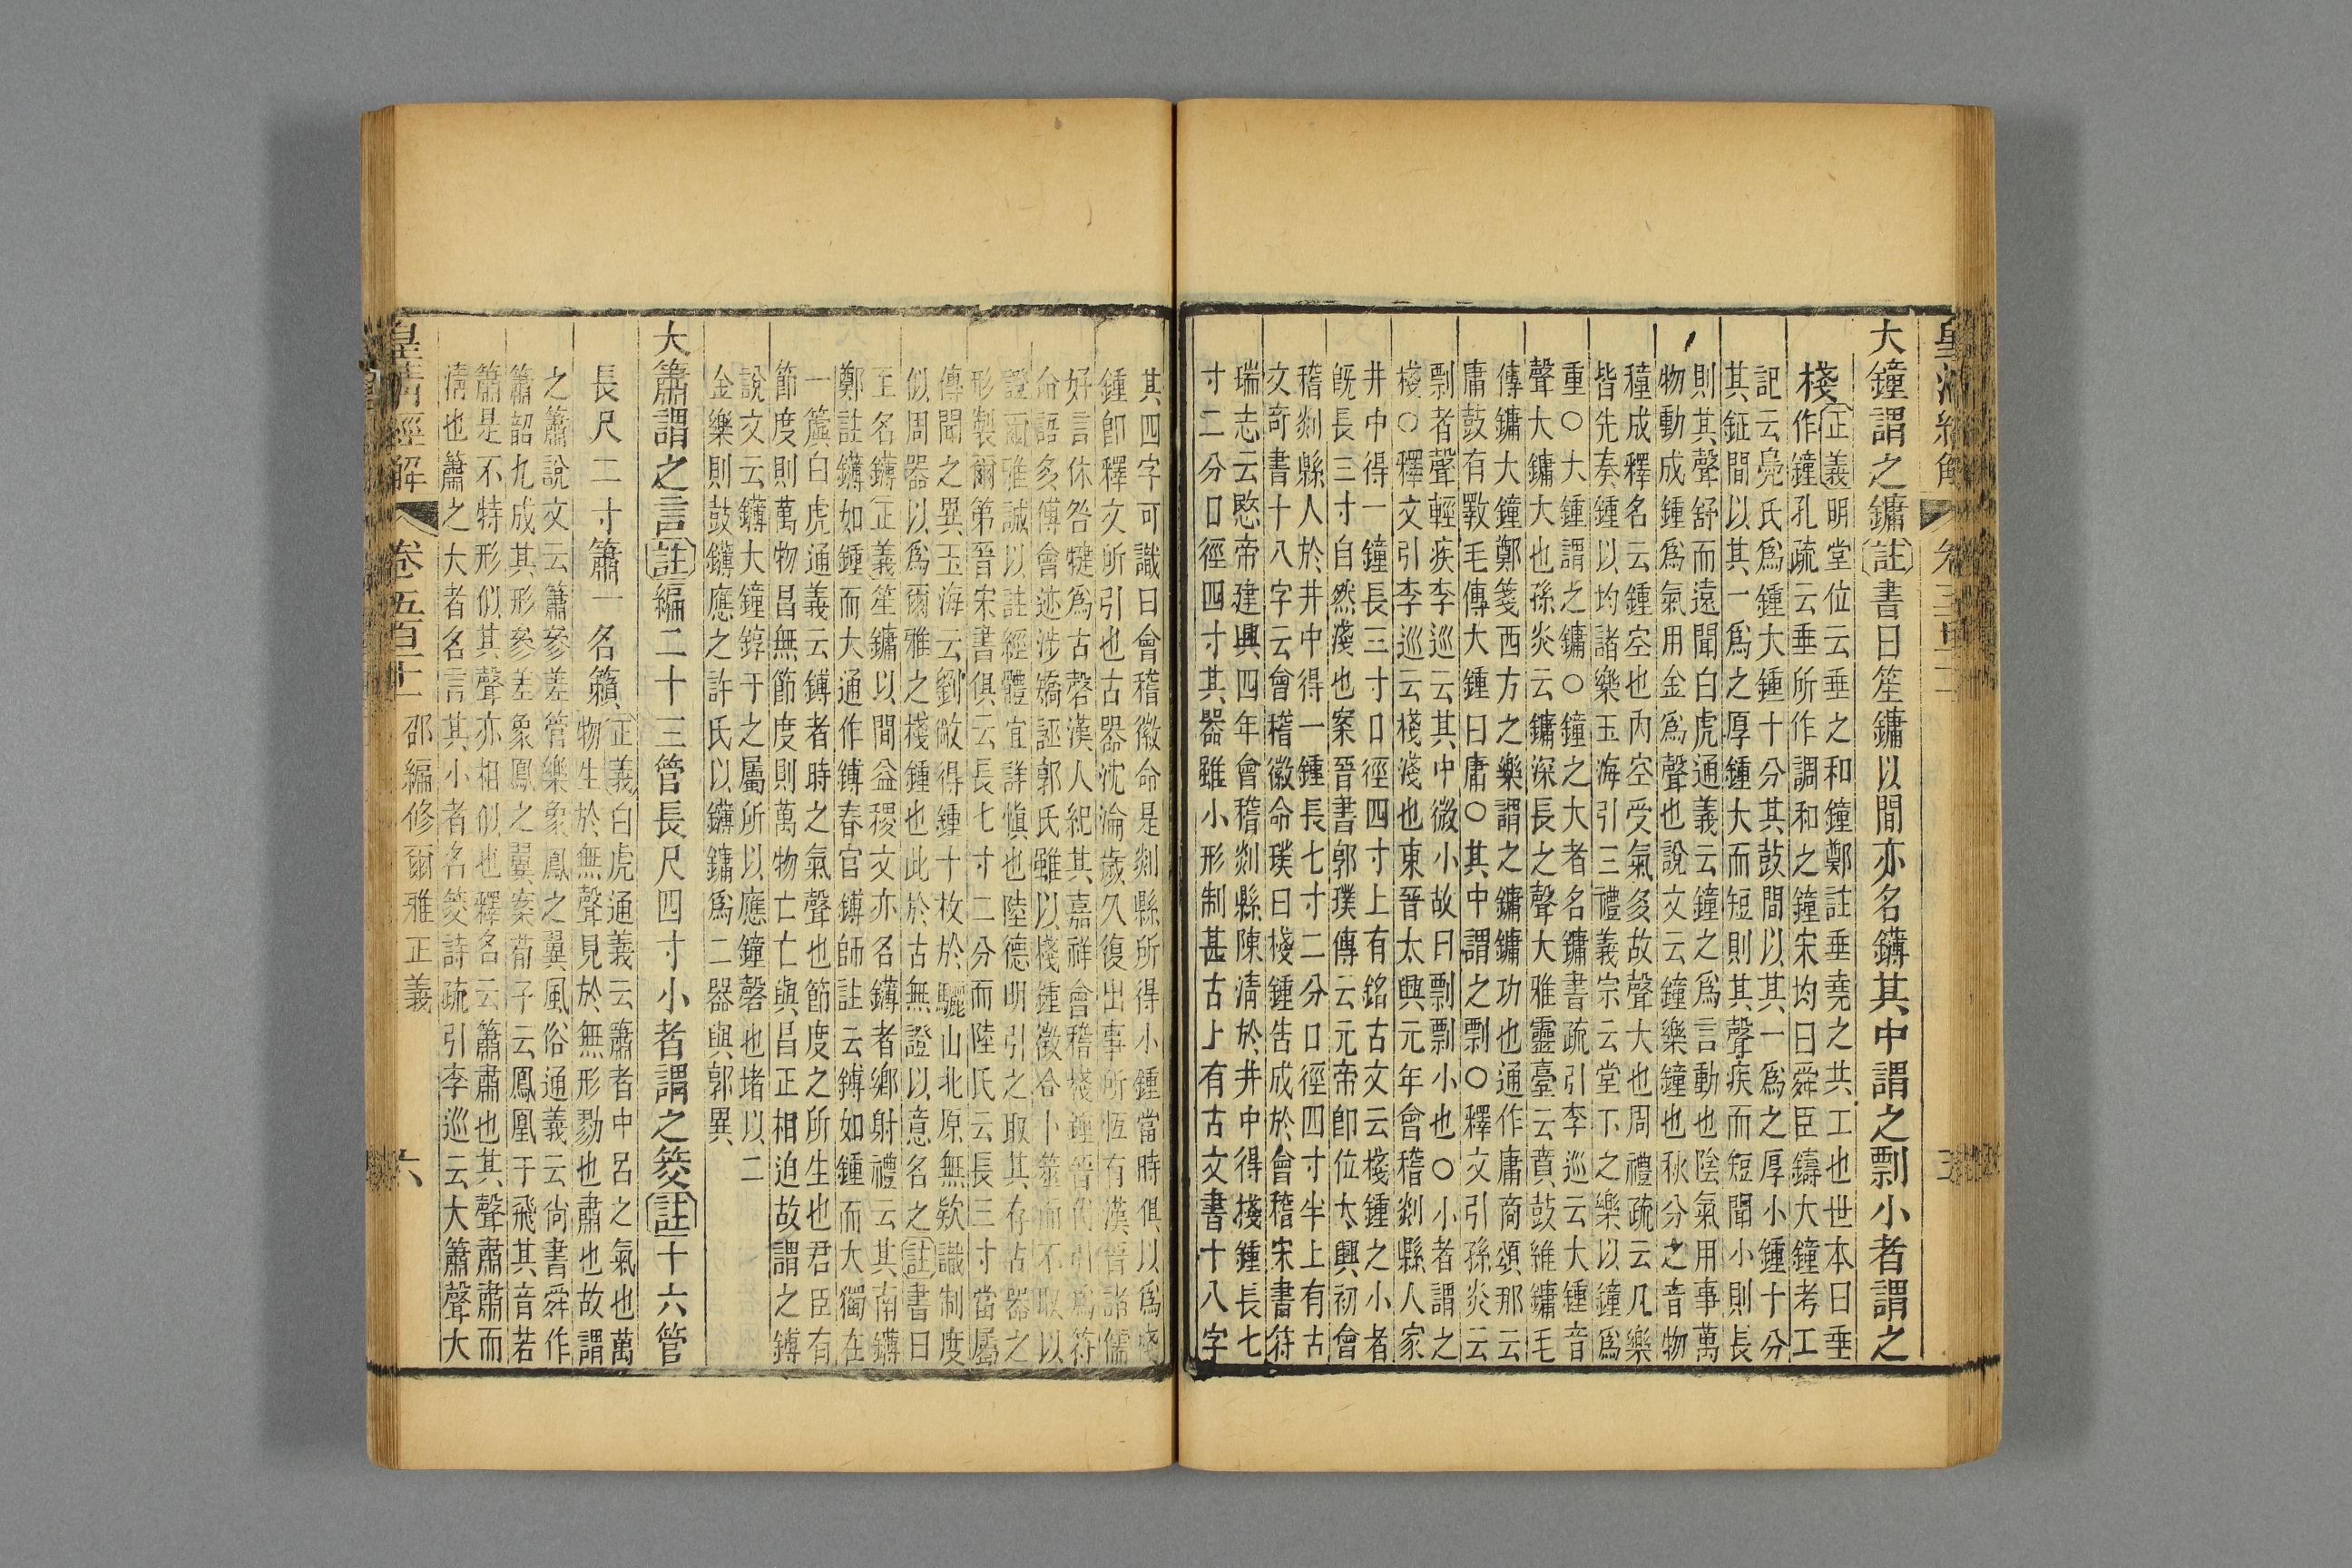 大鐘謂之鏞註書曰笙鏞以間亦名鑮其中謂之剽小者謂之
棧
正義明堂位云垂之和鐘鄭註垂堯之共工也世本曰垂
作鐘孔疏云垂所作調和之鐘宋均曰舜臣鑄大鐘考工
記云鳧氏爲鍾大鍾十分其鼓間以其一爲之厚小鍾十分
其鉦間以其一爲之厚鍾大而短則其聲疾而短聞小則長
則其聲舒而遠聞白虎通義云鐘之爲言動也陰氣用事萬
物動成鍾爲氣用金爲聲也說文云鐘樂鐘也秋分之音物
穜成釋名云鍾空也內空受氣多故聲大也周禮疏云凡樂
皆先奏鍾以均諸樂玉海引三禮義宗云堂下之樂以鐘爲
重○大鍾謂之鏞○鐘之大者名鏞書疏引李巡云大鍾音
聲大鏞大也孫炎云鏞深長之聲大雅靈臺云賁鼓維鏞毛
傳鏞大鐘鄭箋西方之樂謂之鏞鏞功也通作庸商頌那云
庸鼓有斁毛傳大鍾曰庸○其中謂之剽○釋文引孫炎云
剽者聲輕疾李巡云其中微小故曰剽剽小也○小者謂之
棧○釋文引李巡云棧淺也東晉太興元年會稽剡縣人家
井中得一鐘長三寸口徑四寸上有銘古文云棧鍾之小者
旣長三寸自然淺也案晉書郭璞傳云元帝卽位太興初會
稽剡縣人於井中得一鍾長七寸二分口徑四寸半上有古
文奇書十八字云會稽徽命璞曰棧鍾告成於會稽宋書符
瑞志云愍帝建興四年會稽剡縣陳清於井中得棧鍾長七
寸二分口徑四寸其器雖小形制甚古上有古文書十八字
其四字可識曰會稽徽命是剡縣所得小鍾當時俱以爲棧
鍾卽釋文所引也古器沈淪歲久復出事所恆有漢晉諸儒
好言休咎犍爲古磬漢人紀其嘉祥會稽棧鍾晉代引爲符
命語多傅會迹涉矯誣郭氏雖以棧鍾徵合卜筮而不取以
證爾雅誠以註經體宜詳愼也陸德明引之取其存古器之
形製爾第晉宋書俱云長七寸二分而陸氏云長三寸當屬
傳聞之異玉海云劉敞得鍾十枚於驪山北原無欵識制度
似周器以爲爾雅之棧鍾也此於古無證以意名之註書曰
至名鑮正義笙鏞以間益稷文亦名鑮者鄕射禮云其南鑮
鄭註鑮如鍾而大通作鎛春官鎛師註云鎛如鍾而大獨在
一簴白虎通義云鎛者時之氣聲也節度之所生也君臣有
節度則萬物昌無節度則萬物亡亡與昌正相迫故謂之鎛
說文云鑮大鐘錞于之屬所以應鐘磬也堵以二
金樂則鼓鑮應之許氏以鑮鏞爲二器與郭異
大簫謂之言註編二十三管長尺四寸小者謂之筊註十六管
長尺二寸簫一名籟
正義白虎通義云簫者中呂之氣也萬
物生於無聲見於無形勠也肅也故謂
之簫說文云簫參差管樂象鳳之翼風俗通義云尙書舜作
簫韶九成其形參差象鳳之翼案荀子云鳳凰于飛其音若
簫是不特形似其聲亦相似也釋名云簫肅也其聲肅肅而
清也簫之大者名言其小者名筊詩疏引李巡云大簫聲大
皇清經解
卷五百十一
邵編修爾雅正義
六